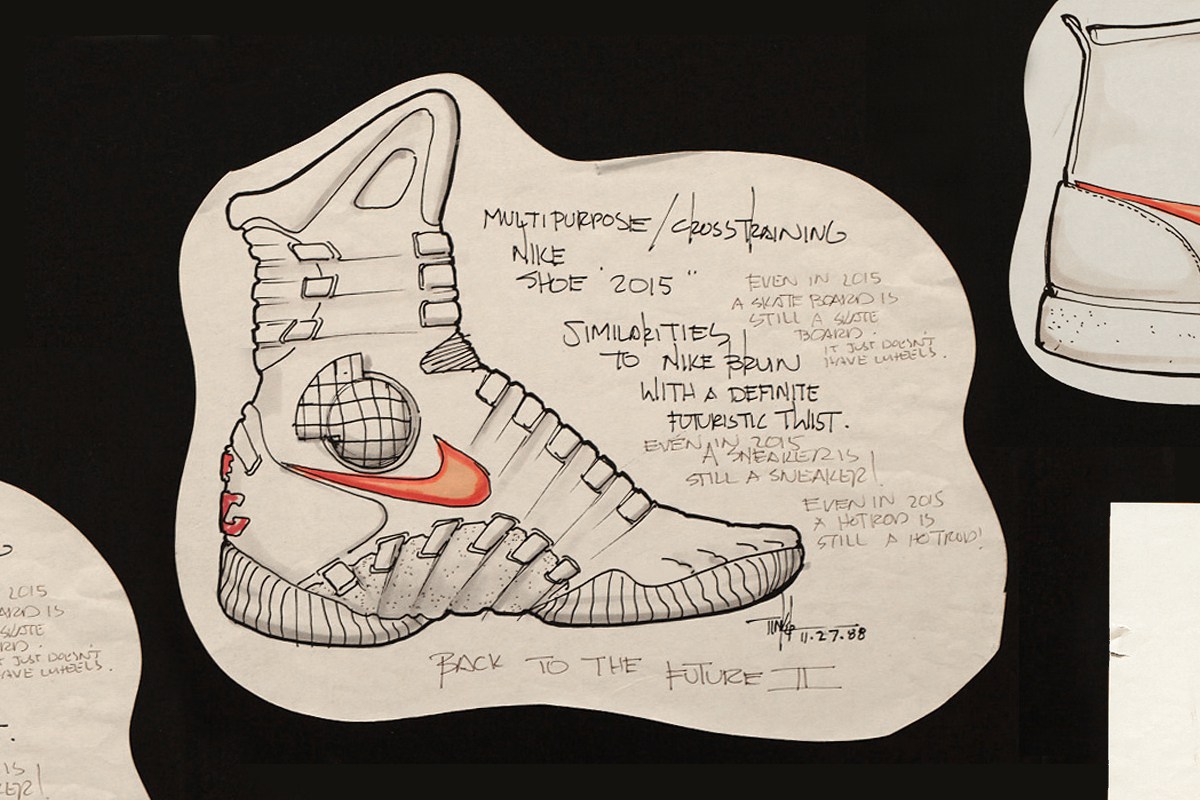 MULTIPURPOSE/CROSSTRAINING
NIKE
SHOE "2015"
EVEN IN 2015
A SKATE BOARD IS
STILL A SKATE
BOARD.
IT JUST DOESN'T
HAVE WHEELS.
SIMILARITIES
TO NIKE BRUIN
WITH A DEFINITE
FUTURISTIC TWIST.
EVEN IN 2015
A SNEAKER IS
STILL A SNEAKER!
EVEN IN 2015
A HOTROD IS
STILL A HOTROD!
11.27.88
BACK TO THE FUTURE II
2015
BOARD IS
SKATE
BOARD.
IT JUST DOESN'T
HAVE WHEELS.